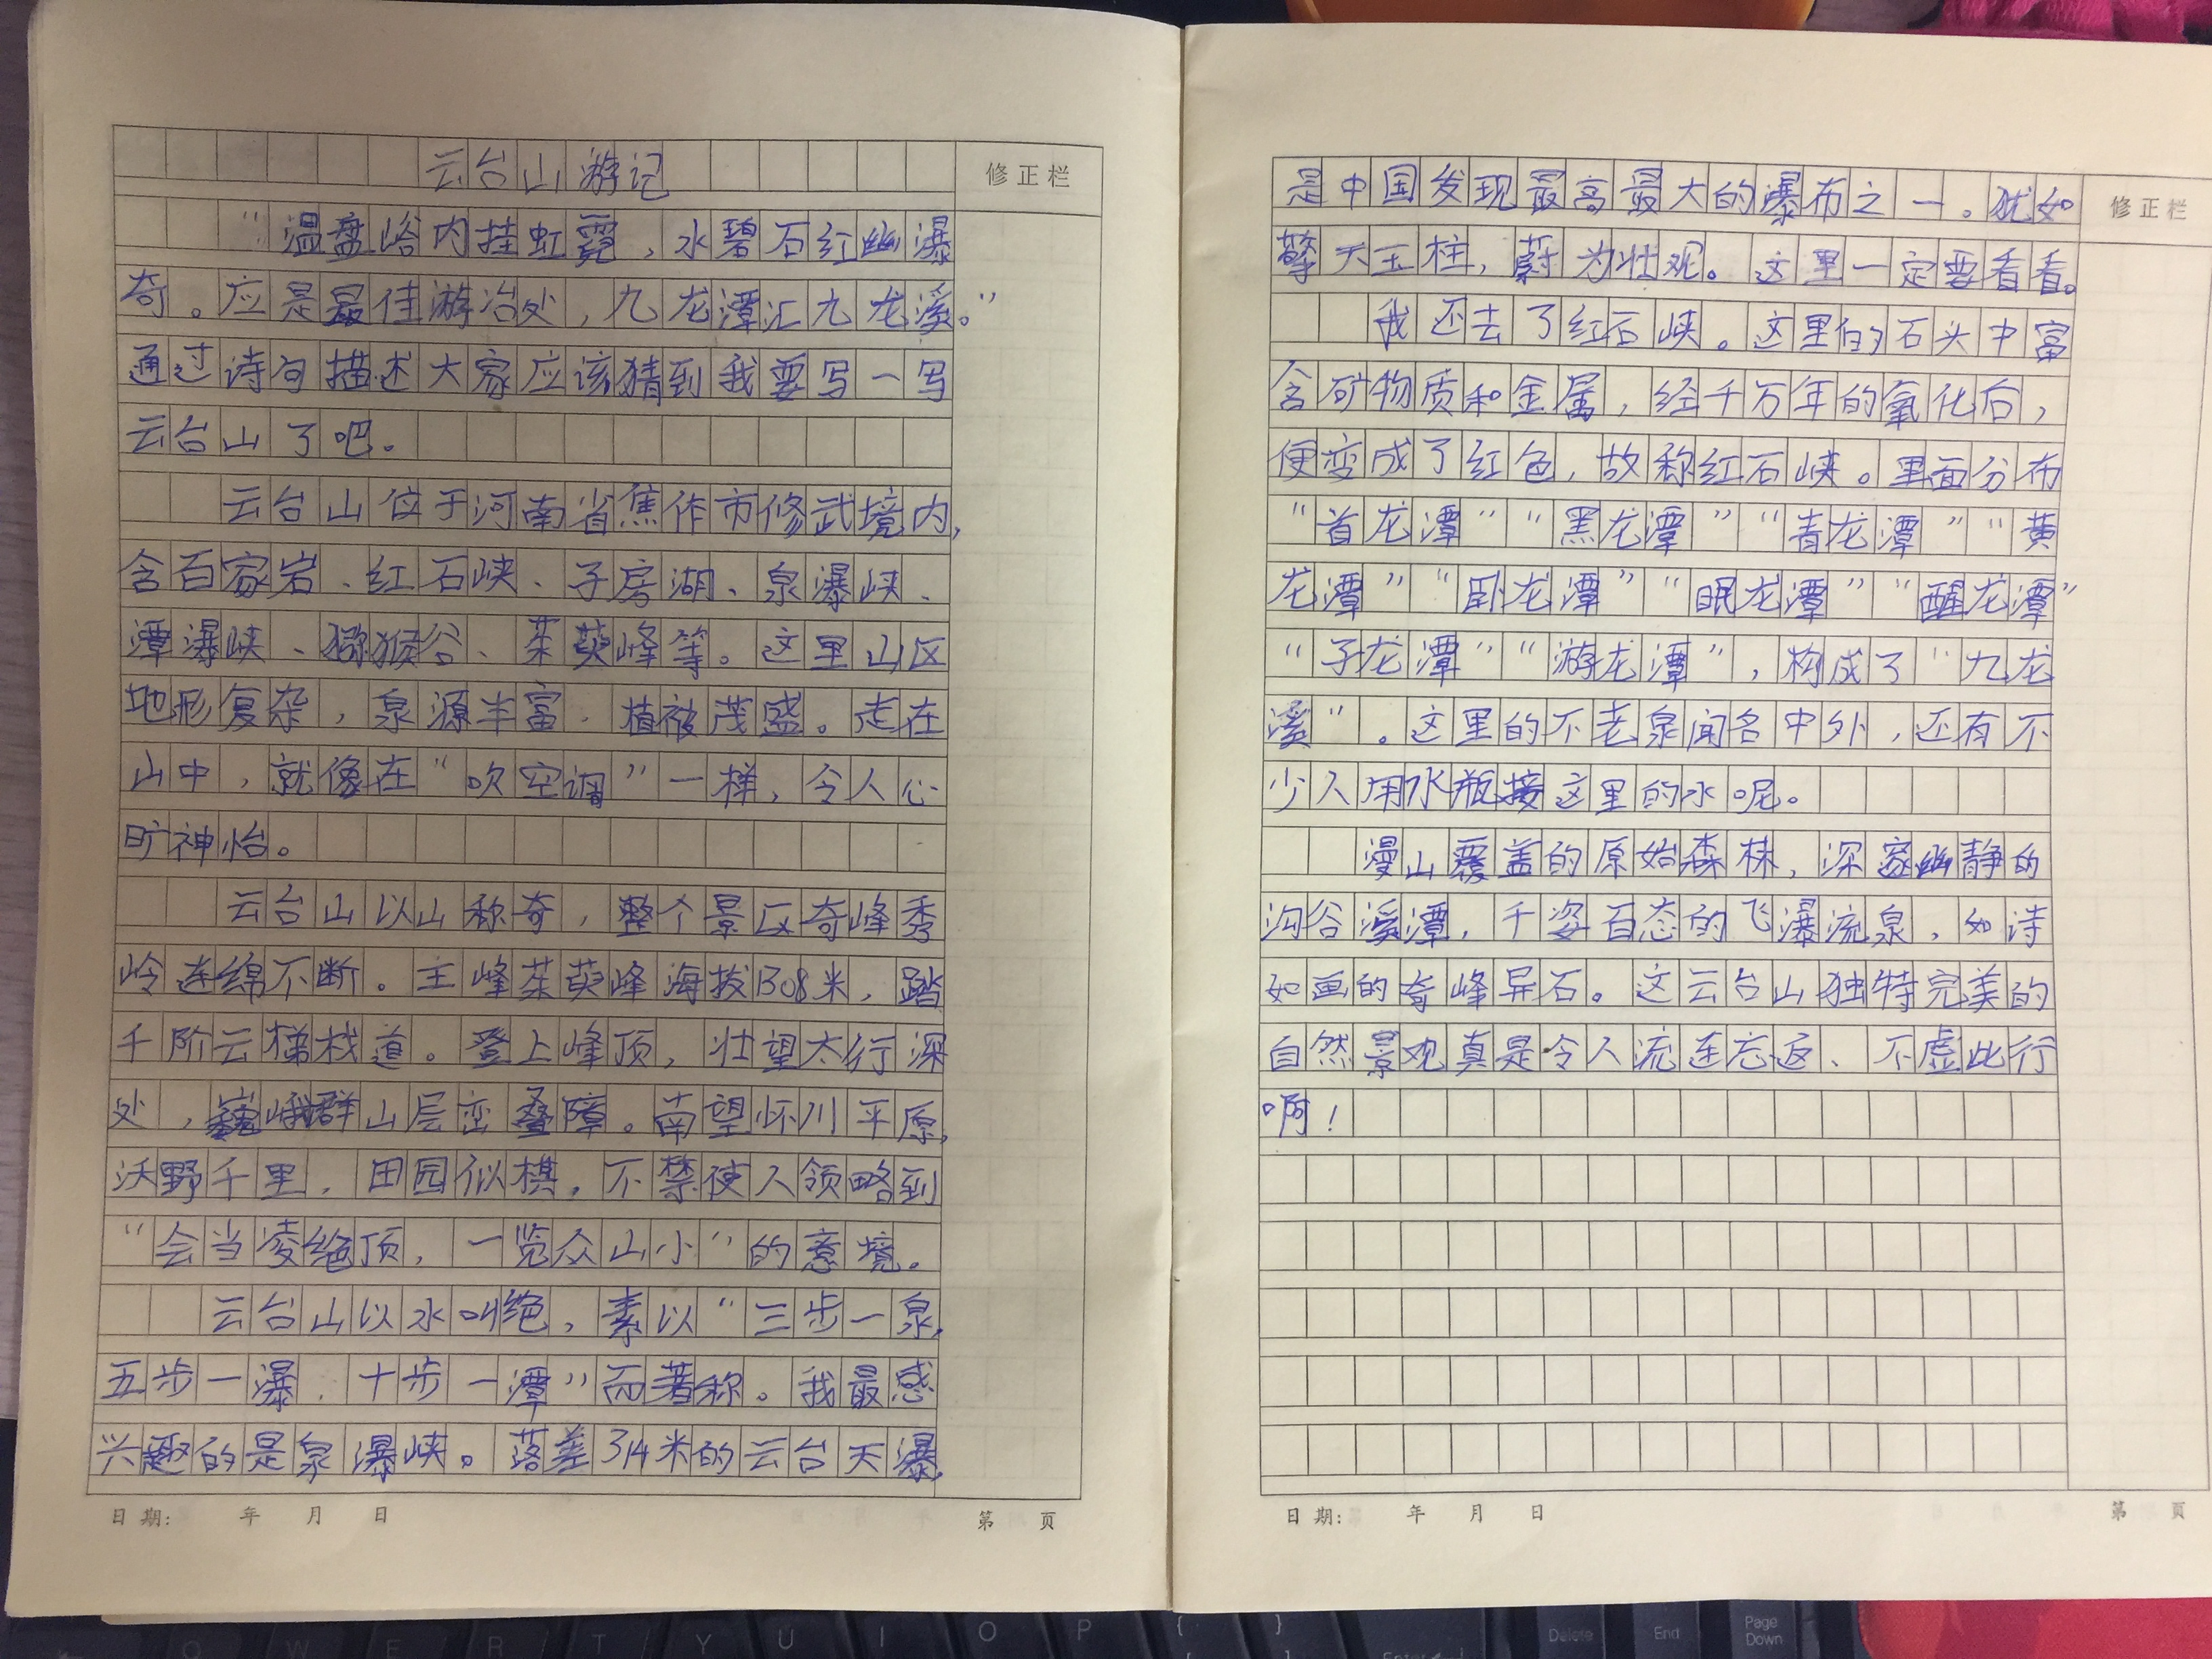 云台山游记
修正栏
“温盘峪内挂虹霓，水碧石红幽瀑
奇。应是最佳游冶处，九龙潭汇九龙溪。”
通过诗句描述大家应该猜到我要写一写
云台山了吧。
云台山位于河南省焦作市修武境内，
含百家岩、红石峡、子房湖、泉瀑峡、
潭瀑峡、猕猴谷、茱萸峰等。这里山区
地形复杂，泉源丰富，植被茂盛。走在
山中，就像在“吹空调”一样，令人心
旷神怡。
云台山以山称奇，整个景区奇峰秀
岭连绵不断。主峰茱萸峰海拔1308米，踏
千阶云梯栈道。登上峰顶，壮望太行深
处，巍峨群山层峦叠障。南望怀川平原，
沃野千里，田园似棋，不禁使人领略到
“会当凌绝顶，一览众山小”的意境。
云台山以水叫绝，素以“三步一泉，
五步一瀑，十步一潭”而著称。我最感
兴趣的是泉瀑峡。落差314米的云台天瀑，
日期: 年 月 日 第 页
修正栏
是中国发现最高最大的瀑布之一。犹如
擎天玉柱，蔚为壮观。这里一定要看看。
我还去了红石峡。这里的石头中富
含矿物质和金属，经千万年的氧化后，
便变成了红色，故称红石峡。里面分布
“首龙潭”“黑龙潭”“青龙潭”“黄
龙潭”“卧龙潭”“眠龙潭”“醒龙潭”
“子龙潭”“游龙潭”，构成了“九龙
溪”。这里的不老泉闻名中外，还有不
少人用水瓶接这里的水呢。
漫山覆盖的原始森林，深邃幽静的
沟谷溪潭，千姿百态的飞瀑流泉，如诗
如画的奇峰异石。这云台山独特完美的
自然景观真是令人流连忘返、不虚此行
啊！
日期: 年 月 日 第 页
Q W E R T Y U I O P { }
Delete End Page Down